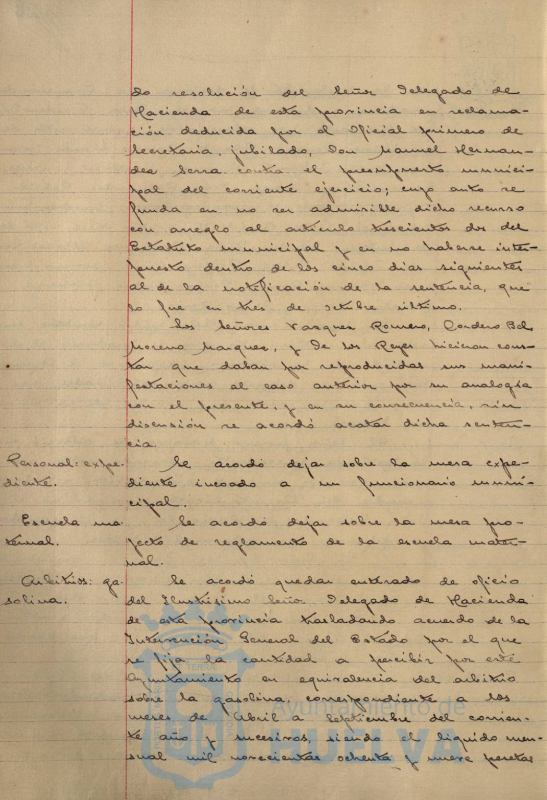 do resolución del Señor Delegado de
Hacienda de esta provincia en reclama-
ción deducida por el Oficial primero de
Secretaria, jubilado, Don Manuel Hernan-
dez Serra contra el presupuesto munici-
pal del corriente ejercicio; cuyo auto se
funda en no ser admisible dicho recurso
con arreglo al articulo trescientos dos del
Estatuto municipal y en no haberse inter-
puesto dentro de los cinco dias siguientes
al de la notificación de la sentencia, que
lo fue en tres de Octubre último.
Los Señores Vazquez Romero, Cordero Bel,
Moreno Marquez, y De los Reyes hicieron cons-
tar que daban por reproducidas sus mani-
festaciones al caso anterior por su analogía
con el presente, y en su consecuencia, sin
discensión se acordó acatar dicha senten-
cia.
Personal: expe-
diente.
Se acordó dejar sobre la mesa expe-
diente incoado a un funcionario muni-
cipal.
Escuela ma-
ternal.
Se acordó dejar sobre la mesa pro-
yecto de reglamento de la escuela mater-
nal.
Arbitrios: ga-
solina.
Se acordó quedar enterado de oficio
del Ilustrisimo Señor Delegado de Hacienda
de esta provincia trasladando acuerdo de la
Intervención General del Estado por el que
se fija la cantidad a percibir por este
Ayuntamiento en equivalencia del arbitrio
sobre la gasolina, correspondiente a los
meses de Abril a Septiembre del corrien-
te año y sucesivos, siendo el liquido men-
sual mil novecientas ochenta y nueve pesetas
Ayuntamiento de
HUELVA